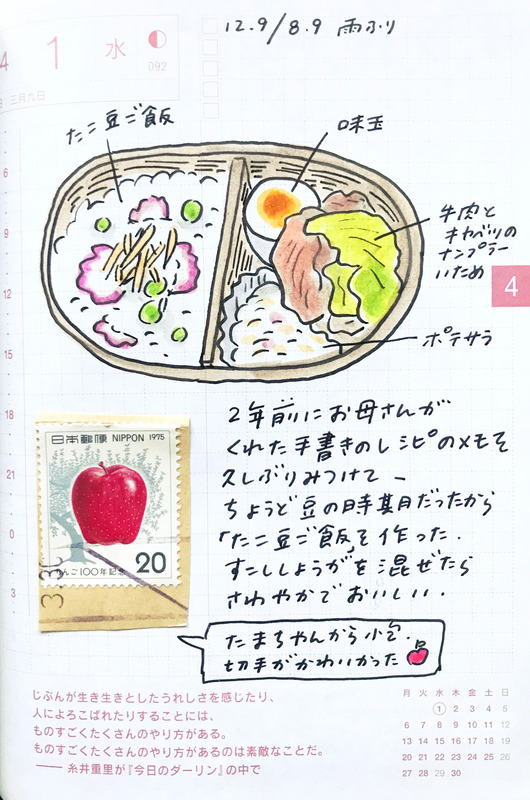 12.9/8.9 雨ふり
4
1
水
092
三月九日
たこ豆ご飯
味玉
牛肉と
キャベツの
ナンプラー
いため
ポテサラ
6
9
12
15
18
21
0
3
4
日本郵便 NIPPON 1975
りんご100年記念
20
2年前にお母さんが
くれた手書きのレシピのメモを
久しぶりみつけて
ちょうど豆の時期だったから
「たこ豆ご飯」を作った.
すこししょうがを混ぜたら
さわやかでおいしい.
たまちゃんから小包.
切手がかわいかった
じぶんが生き生きとしたうれしさを感じたり、
人によろこばれたりすることには、
ものすごくたくさんのやり方がある。
ものすごくたくさんのやり方があるのは素敵なことだ。
──糸井重里が『今日のダーリン』の中で
月 火 水 木 金 土 日
1 2 3 4 5
6 7 8 9 10 11 12
13 14 15 16 17 18 19
20 21 22 23 24 25 26
27 28 29 30